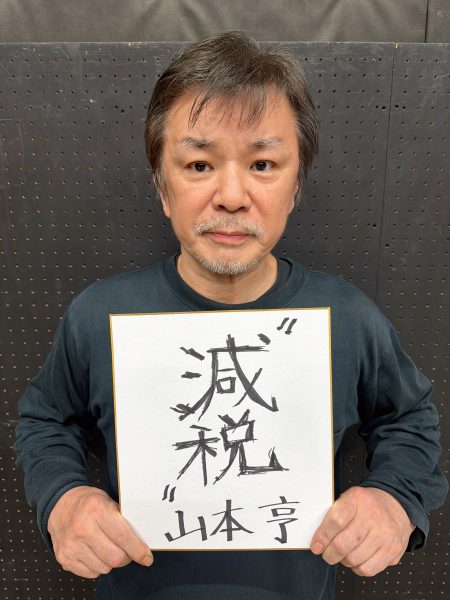 〝減
税〟
山本 亨